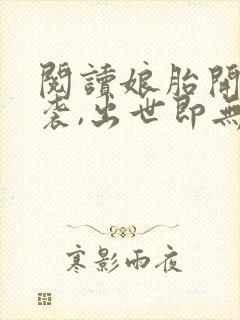 閱讀娘胎開
襲,出世即無
寒影雨夜